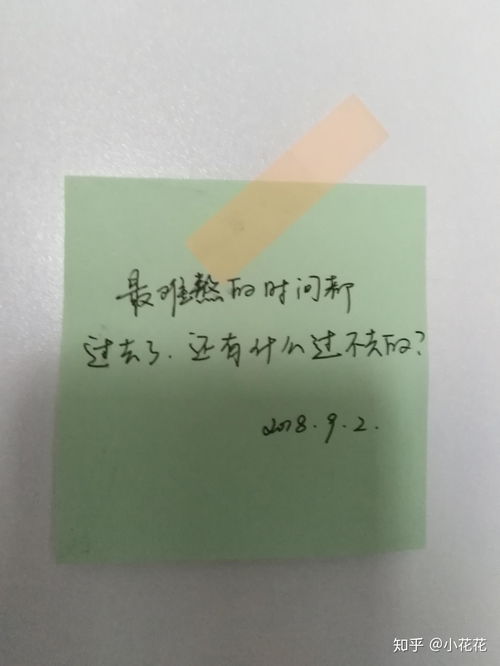 最难熬的时间都
过去了.还有什么过不去的?
2018.9.2.
知乎 @小花花